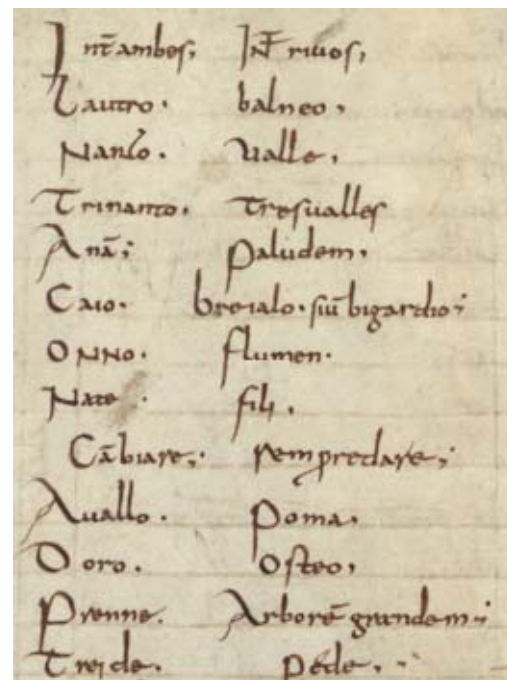 Int̄ambes; Int̄ riuos,
Lautro. balneo,
Nanto. ualle,
Trinanto. Tresualles
Anā; paludem.
Caio. breialo. siū bigardio;
Onno. flumen.
Nate. fili.
Cābiare; rem ꝓredare;
Auallo. poma.
Doro. osteo,
Prenne. Arborē grandem;
Treide. pede.